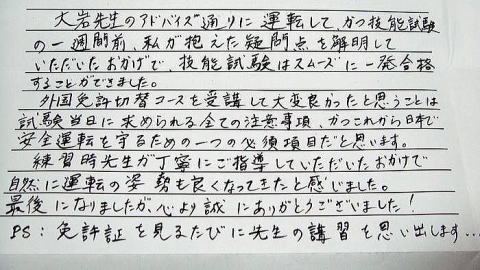 大岩先生のアドバイズ通りに運転して、かつ技能試験
の一週間前、私が抱えた疑問点を解明して
いただいたおかげで、技能試験はスムーズに一発合格
することができました。
外国免許切替コースを受講して大変良かったと思うことは
試験当日に求められる全ての注意事項、かつこれから日本で
安全運転を守るための一つの必須項目だと思います。
練習時先生が丁寧にご指導していただいたおかげで
自然に運転の姿勢も良くなってきたと感じました。
最後になりましたが、心より誠にありがとうございました！
PS：免許証を見るたびに先生の講習を思い出します...